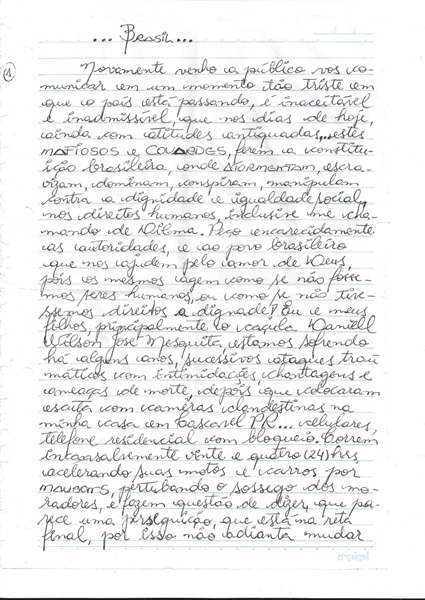 ... Brasil...
01
Novamente venho a público vos co-
municar em um momento tão triste em
que o país está passando, é inaceitável
e inadmissível, que nos dias de hoje,
ainda com atitudes antiquadas,..estes
MAFIOSOS e COVARDES, ferem a constitu-
ição brasileira, onde ATORMENTAM, escra-
vizam, dominam, conspiram, manipulam
contra a dignidade e igualdade social,
nos direitos humanos, inclusive me cha-
mando de Dilma. Peço encarecidamente
as autoridades, e ao povo brasileiro
que nos ajudem pelo amor de Deus,
pois os mesmos agem como se não fosse-
mos seres humanos, ou como se não tive-
ssemos direitos a dignade! Eu e meus
filhos, principalmente o caçula Daniell
Wilson José Mesquita, estamos sofrendo
há alguns anos, sucessivos ataques trau
máticos com intimidações, chantagens e
ameaças de morte, depois que colocaram
escuta com câmeras clandestinas na
minha casa em Cascavel PR... celulares,
telefone residencial com bloqueio. Correm
incansavelmente vinte e quatro (24) hrs,
acelerando suas motos e carros por
perturbando o sossego dos mo-
radores, e fazem questão de dizer, que pa-
rece uma perseguição, que está na reta
final, por isso não adianta mudar